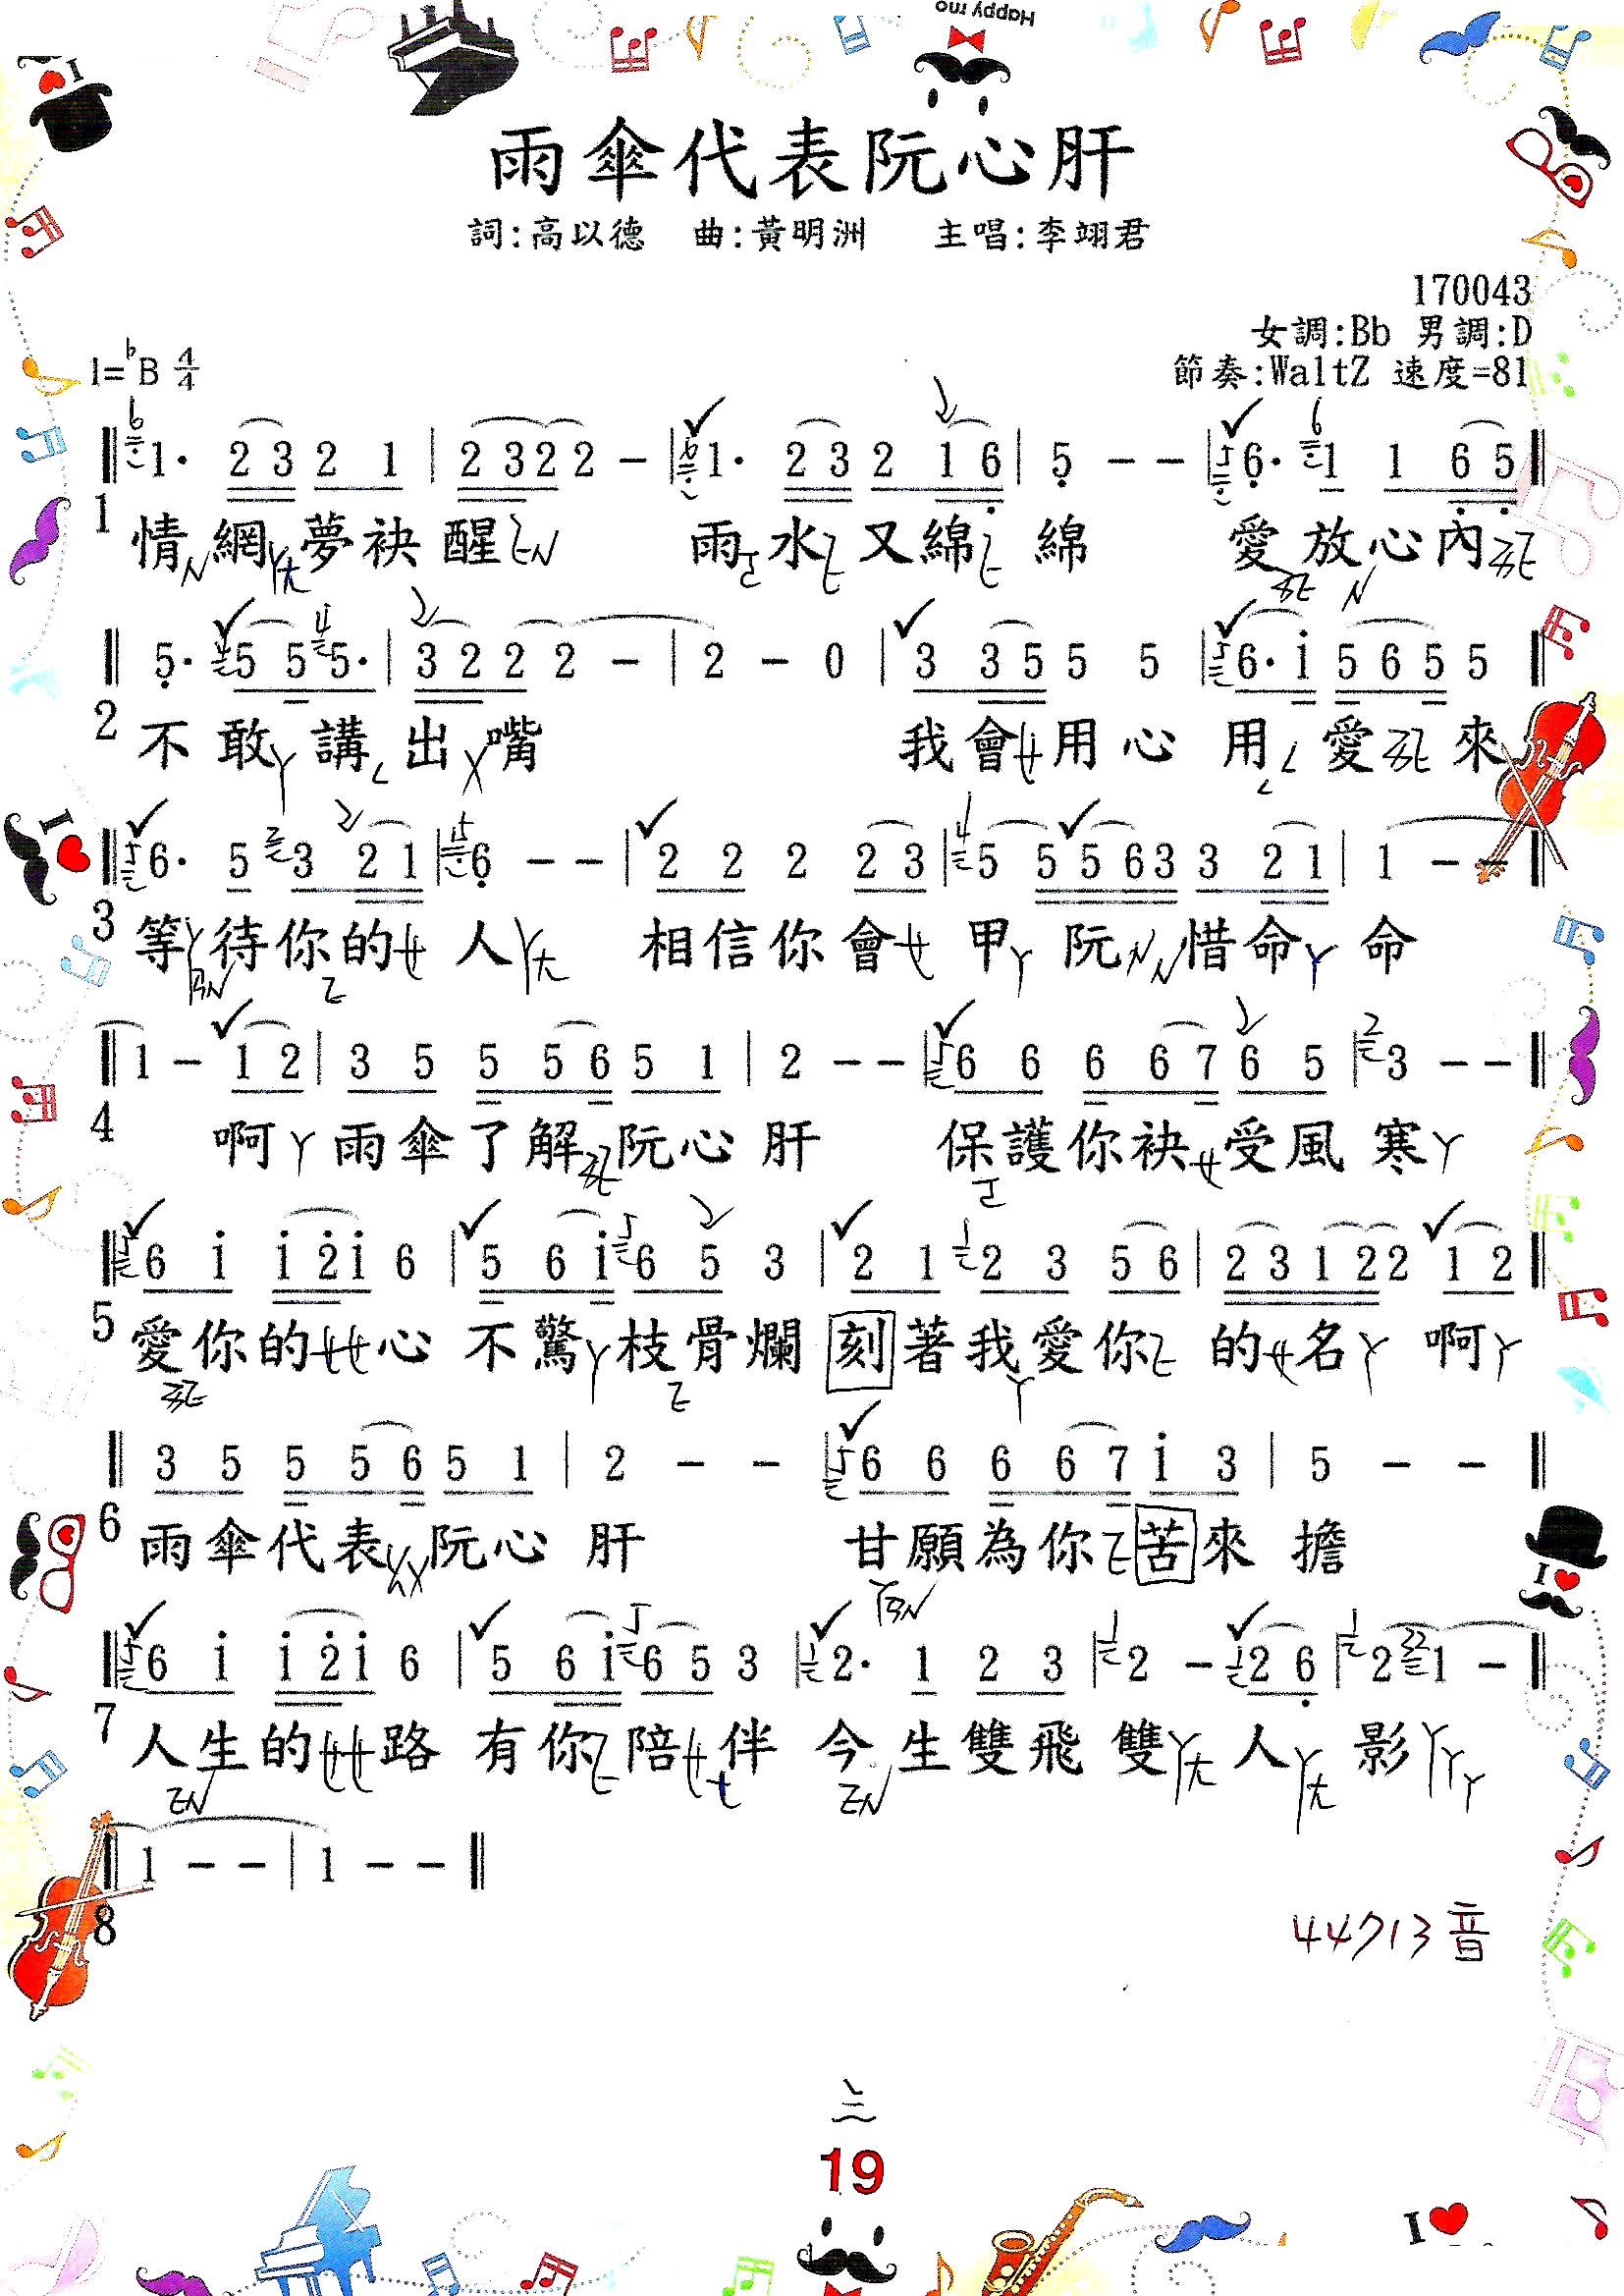 Happy mo
雨傘代表阮心肝
詞:高以德 曲:黃明洲 主唱:李翊君
170043
女調:Bb 男調:D
1=♭B 4/4 節奏:WaltZ 速度=81
‖ 1· 2 3 2 1 | 2 3 2 2 – | 1· 2 3 2 1 6̣ | 5̣ – – | 6̣· 1 1 6̣ 5̣ ‖
1 情網夢袂醒 雨水又綿綿 愛放心內
‖ 5̣· 5 5 5· | 3 2 2 2 – | 2 – 0 | 3 3 5 5 5 | 6· i 5 6 5 5 ‖
2 不敢講出嘴 我會用心用愛來
‖ 6· 5 3 2 1 | 6̣ – – | 2 2 2 2 3 | 5 5 5 6 3 3 2 1 | 1 – – ‖
3 等待你的人 相信你會甲阮惜命命
‖ 1 – 1 2 | 3 5 5 5 6 5 1 | 2 – – | 6 6 6 6 7 6 5 | 3 – – ‖
4 啊雨傘了解阮心肝 保護你袂受風寒
‖ 6 i i 2̇ i 6 | 5 6 i 6 5 3 | 2 1 2 3 5 6 | 2 3 1 2 2 1 2 ‖
5 愛你的心不驚枝骨爛刻著我愛你的名啊
‖ 3 5 5 5 6 5 1 | 2 – – | 6 6 6 6 7 i 3 | 5 – – ‖
6 雨傘代表阮心肝 甘願為你苦來擔
‖ 6 i i 2̇ i 6 | 5 6 i 6 5 3 | 2· 1 2 3 | 2 – 2 6̣ | 2 1 – ‖
7 人生的路有你陪伴今生雙飛雙人影
‖ 1 – – | 1 – – ‖
8
44713音
19
I